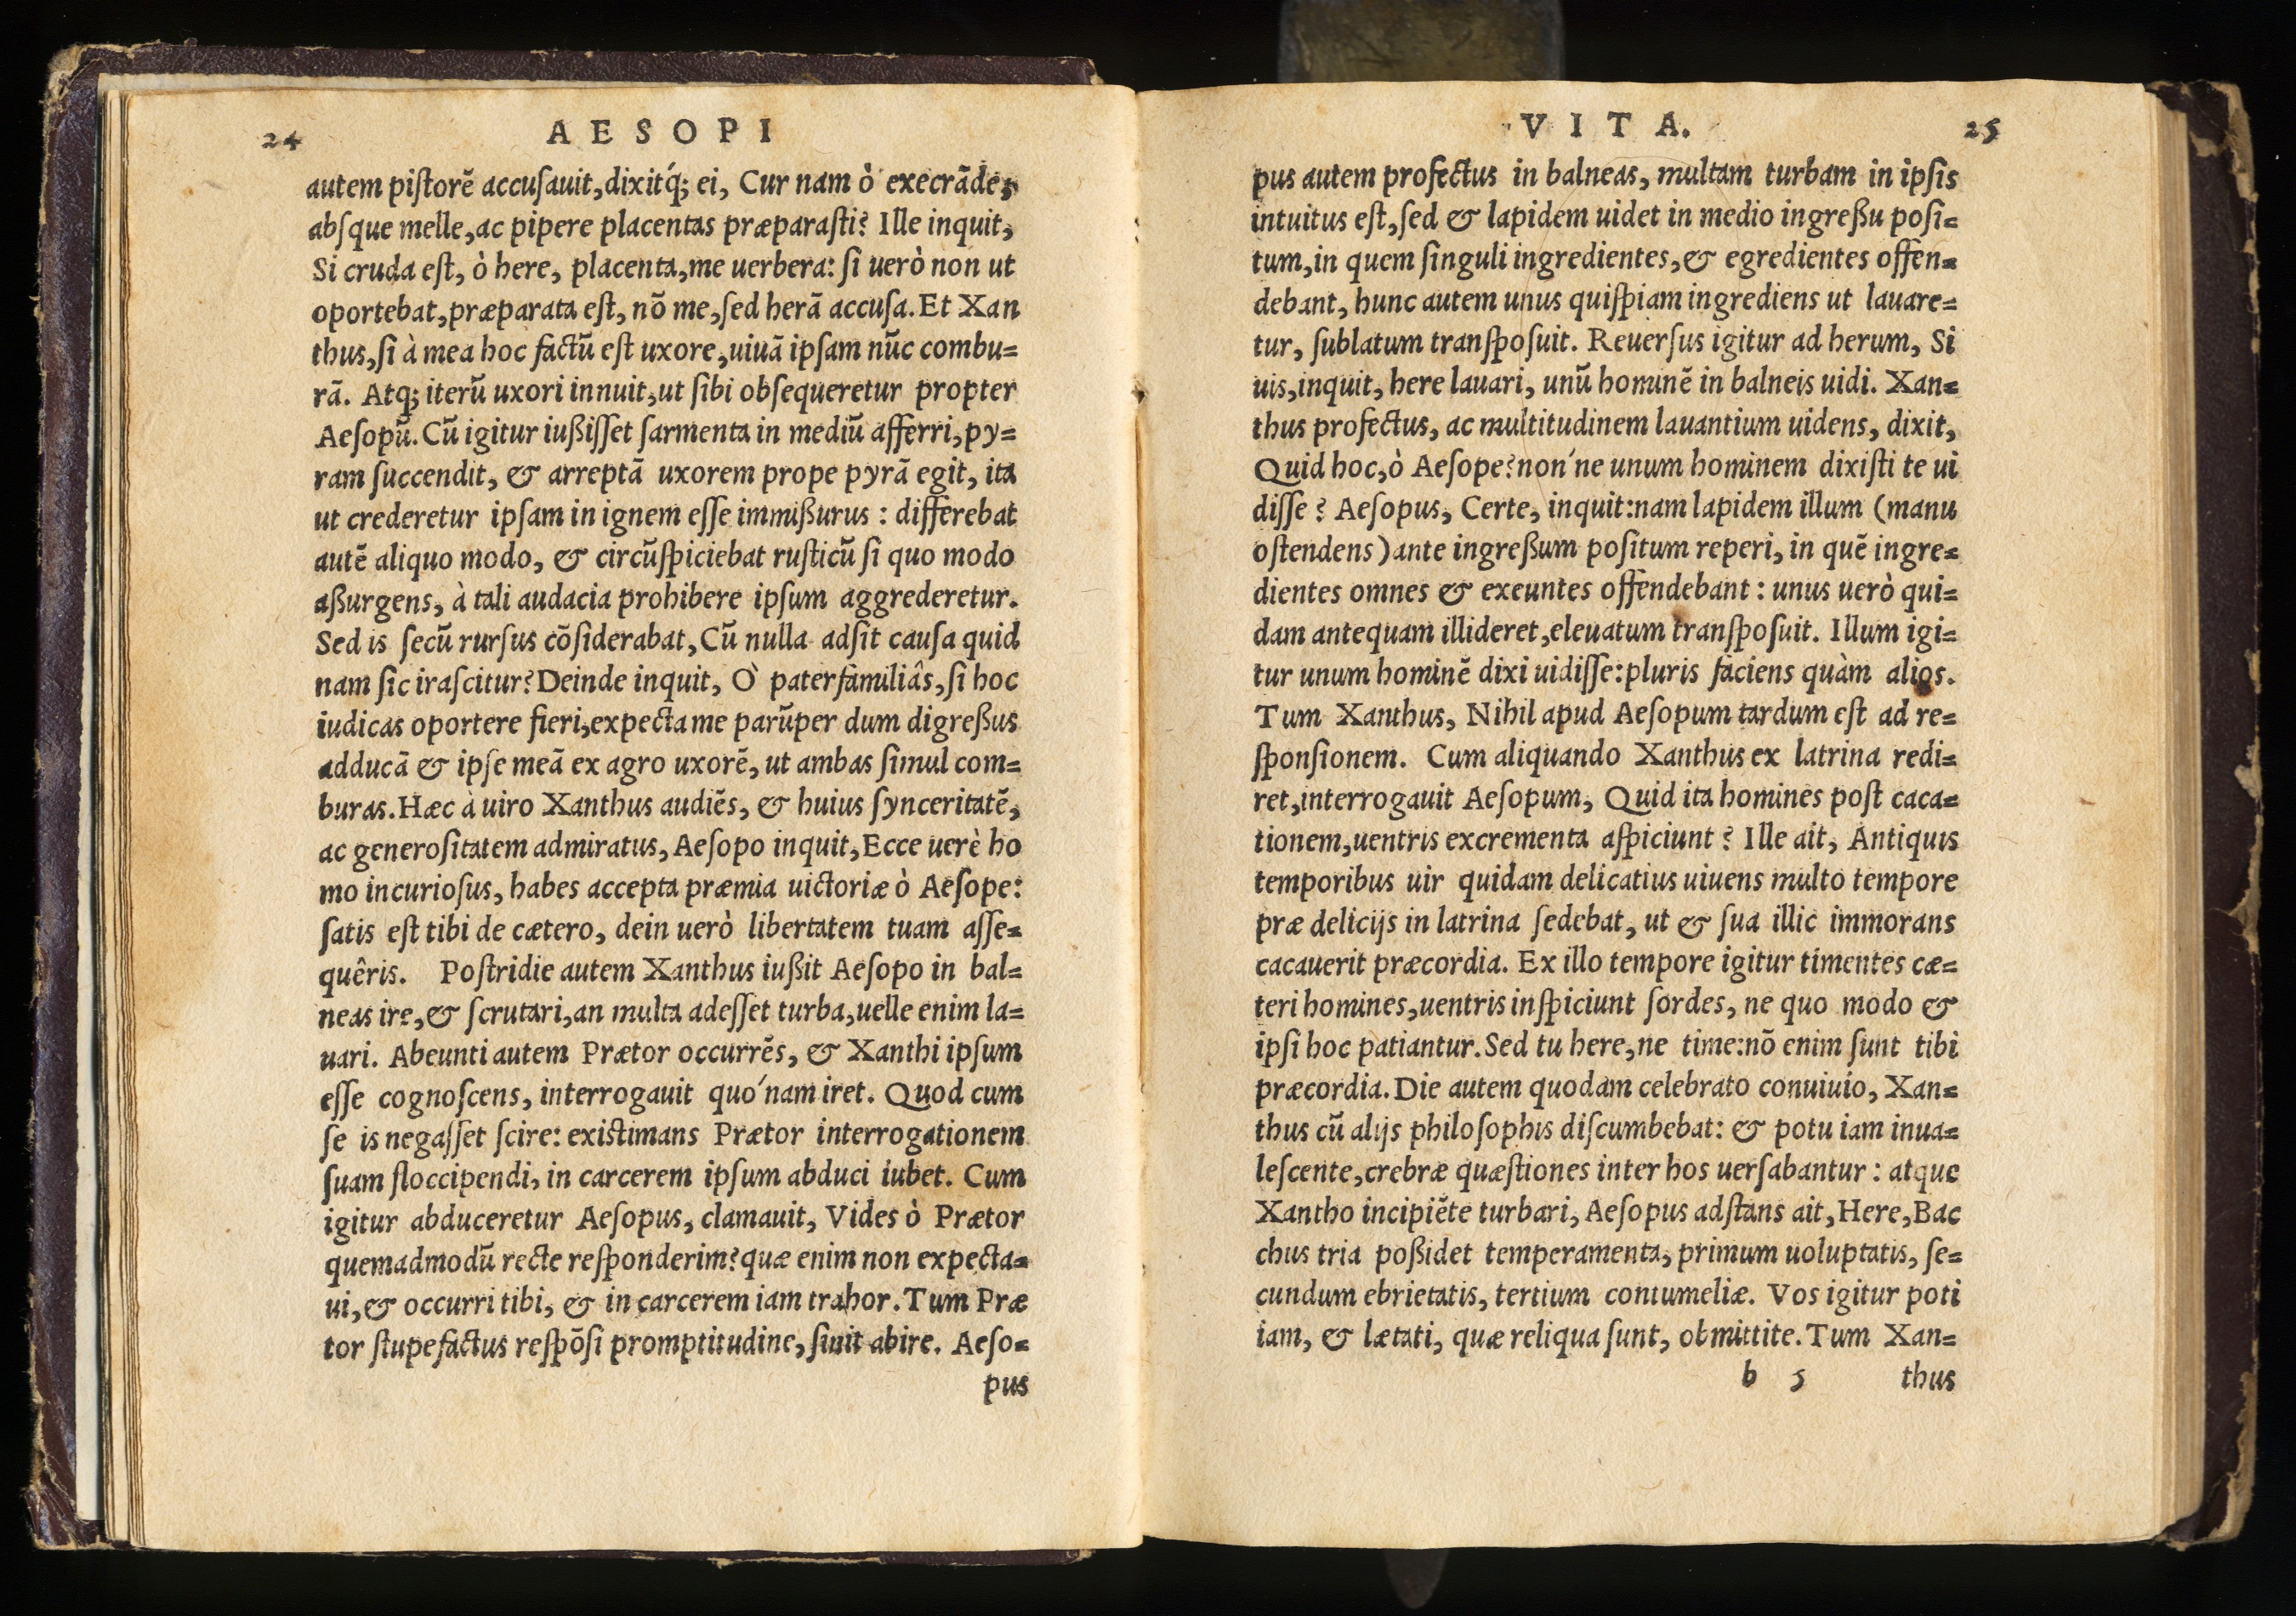 24 AESOPI
autem piſtorẽ accuſauit, dixitq́; ei, Cur nam ò execrãde,
abſque melle, ac pipere placentas præparaſti? Ille inquit,
Si cruda eſt, ò here, placenta, me uerbera: ſi uerò non ut
oportebat, præparata eſt, nõ me, ſed herã accuſa. Et Xan
thus, ſi à mea hoc factũ eſt uxore, uiuã ipſam nũc combu=
rã. Atq; iterũ uxori innuit, ut ſibi obſequeretur propter
Aeſopũ. Cũ igitur iußiſſet ſarmenta in mediũ afferri, py=
ram ſuccendit, & arreptã uxorem prope pyrã egit, ita
ut crederetur ipſam in ignem eſſe immißurus: differebat
autẽ aliquo modo, & circũſpiciebat ruſticũ ſi quo modo
aßurgens, à tali audacia prohibere ipſum aggrederetur.
Sed is ſecũ rurſus cõſiderabat, Cũ nulla adſit cauſa quid
nam ſic iraſcitur? Deinde inquit, Ò paterfamiliâs, ſi hoc
iudicas oportere fieri, expecta me parũper dum digreßus
adducã & ipſe meã ex agro uxorẽ, ut ambas ſimul com=
buras. Hæc à uiro Xanthus audiẽs, & huius ſynceritatẽ,
ac generoſitatem admiratus, Aeſopo inquit, Ecce uerè ho
mo incurioſus, habes accepta præmia uictoriæ ò Aeſope:
ſatis eſt tibi de cætero, dein uerò libertatem tuam aſſe=
quêris. Poſtridie autem Xanthus iußit Aeſopo in bal=
neas ire, & ſcrutari, an multa adeſſet turba, uelle enim la=
uari. Abeunti autem Prætor occurrẽs, & Xanthi ipſum
eſſe cognoſcens, interrogauit quo´nam iret. Quod cum
ſe is negaſſet ſcire: existimans Prætor interrogationem
ſuam floccipendi, in carcerem ipſum abduci iubet. Cum
igitur abduceretur Aeſopus, clamauit, Vides ò Prætor
quemadmodũ recte reſponderim? quæ enim non expecta=
ui, & occurri tibi, & in carcerem iam trahor. Tum Præ
tor ſtupefactus reſpõſi promptitudine, ſinit abire. Aeſo=
pus
VITA. 25
pus autem profectus in balneas, multam turbam in ipſis
intuitus eſt, ſed & lapidem uidet in medio ingreßu poſi=
tum, in quem ſinguli ingredientes, & egredientes offen=
debant, hunc autem unus quiſpiam ingrediens ut lauare=
tur, ſublatum tranſpoſuit. Reuerſus igitur ad herum, Si
uis, inquit, here lauari, unũ hominẽ in balneis uidi. Xan=
thus profectus, ac multitudinem lauantium uidens, dixit,
Quid hoc, ò Aeſope? non´ne unum hominem dixiſti te ui
diſſe? Aeſopus, Certe, inquit: nam lapidem illum (manu
oſtendens) ante ingreßum poſitum reperi, in quẽ ingre=
dientes omnes & exeuntes offendebant: unus uerò qui=
dam antequam illideret, eleuatum tranſpoſuit. Illum igi=
tur unum hominẽ dixi uidiſſe: pluris faciens quàm alios.
Tum Xanthus, Nihil apud Aeſopum tardum eſt ad re=
ſponſionem. Cum aliquando Xanthus ex latrina redi=
ret, interrogauit Aeſopum, Quid ita homines poſt caca=
tionem, uentris excrementa aſpiciunt? Ille ait, Antiquis
temporibus uir quidam delicatius uiuens multo tempore
præ delicijs in latrina ſedebat, ut & ſua illic immorans
cacauerit præcordia. Ex illo tempore igitur timentes cæ=
teri homines, uentris inſpiciunt ſordes, ne quo modo &
ipſi hoc patiantur. Sed tu here, ne time: nõ enim ſunt tibi
præcordia. Die autem quodam celebrato conuiuio, Xan=
thus cũ alijs philoſophis diſcumbebat: & potu iam inua=
leſcente, crebræ quæſtiones inter hos uerſabantur: atque
Xantho incipiẽte turbari, Aeſopus adſtans ait, Here, Bac
chus tria poßidet temperamenta, primum uoluptatis, ſe=
cundum ebrietatis, tertium contumeliæ. Vos igitur poti
iam, & lætati, quæ reliqua ſunt, obmittite. Tum Xan=
b 5 thus